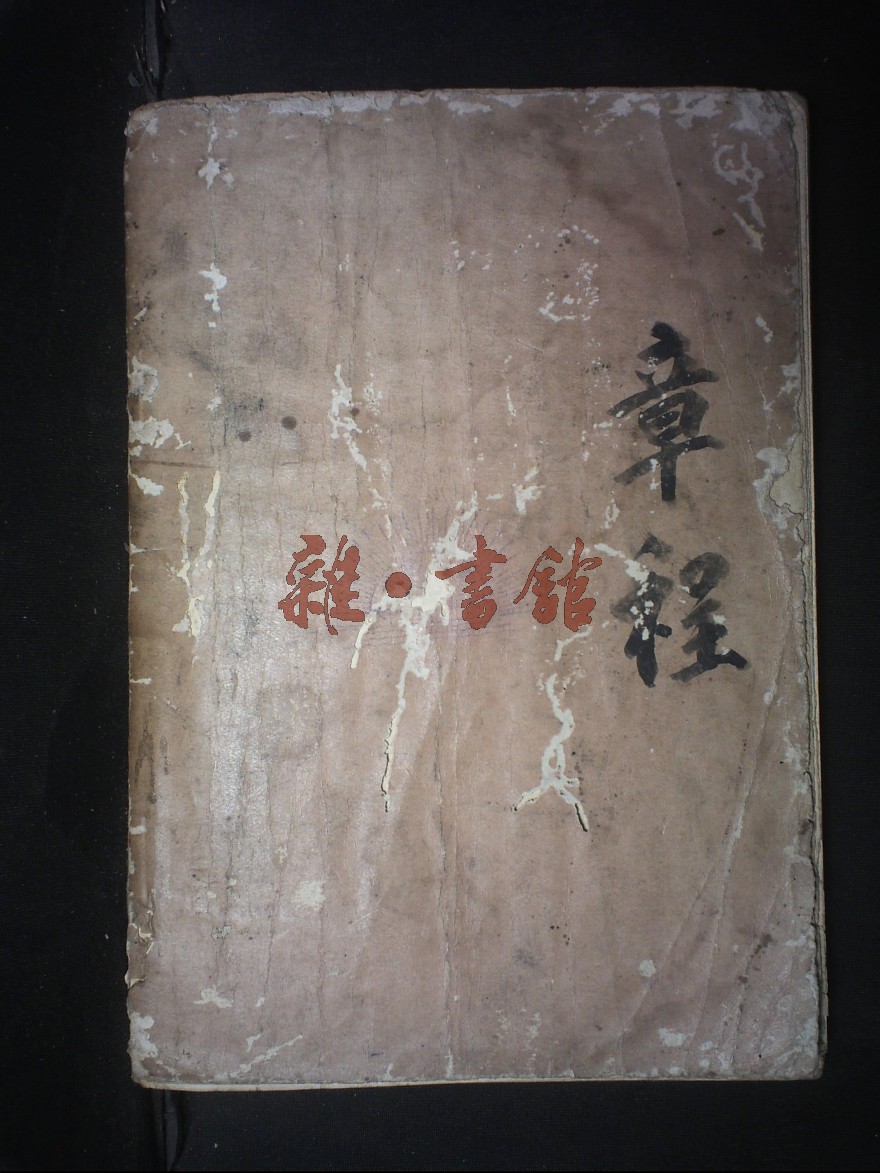 章程
雜·書館